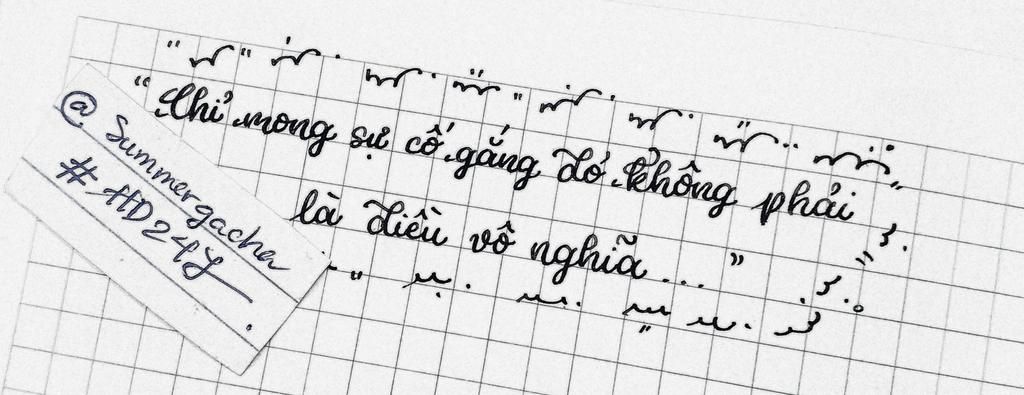 "Chỉ mong sự cố gắng đó không phải
là điều vô nghĩa..."
@Summergacha
#HD24Y